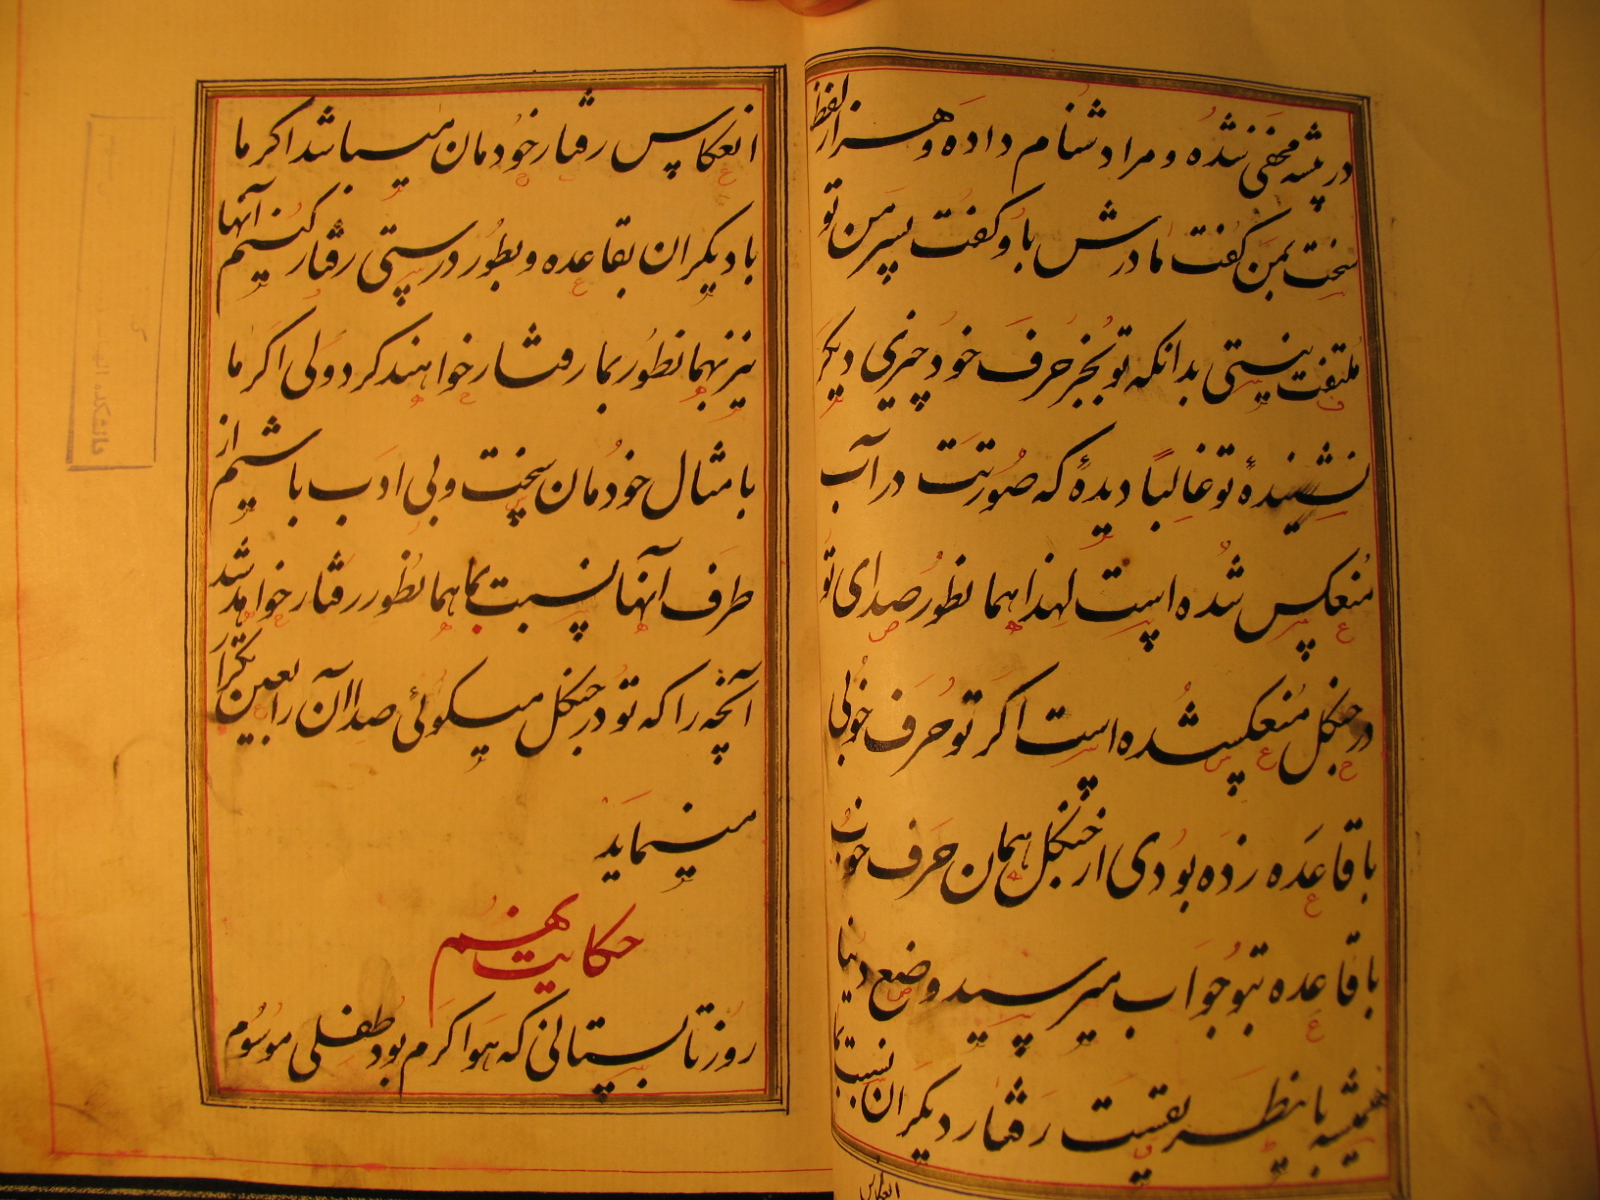 در پیشه مخفی شده و مرا دشنام داده و هزار لفظ
سخت بمن گفت مادرش باو گفت پسر من تو
ملتفت نیستی بدانکه تو بجز حرف خود چیزی دیگر
نشنیدهٔ تو غالباً دیدهٔ که صورتت در آب
منعکس شده است لهذا همانطور صدای تو
در جنگل منعکس شده است اگر تو حرف خوبی
با قاعده زده بودی از جنگل همان حرف خوب
با قاعده بتو جواب میرسید وضع دنیا
همیشه باینطریقست رفتار دیگران نسبت بما
انعکاس
انعکاس رفتار خودمان میباشد اگر ما
با دیگران بقاعده و بطور درستی رفتار کنیم آنها
نیز بهمانطور بما رفتار خواهند کرد ولی اگر ما
با مثال خودمان سخت و بی ادب باشیم از
طرف آنها نسبت بما همانطور رفتار خواهد شد
آنچه را که تو در جنگل میگوئی صدا آن را بعین تکرار
مینماید
حکایت نهم
روز تابستانی که هوا گرم بود طفلی موسوم